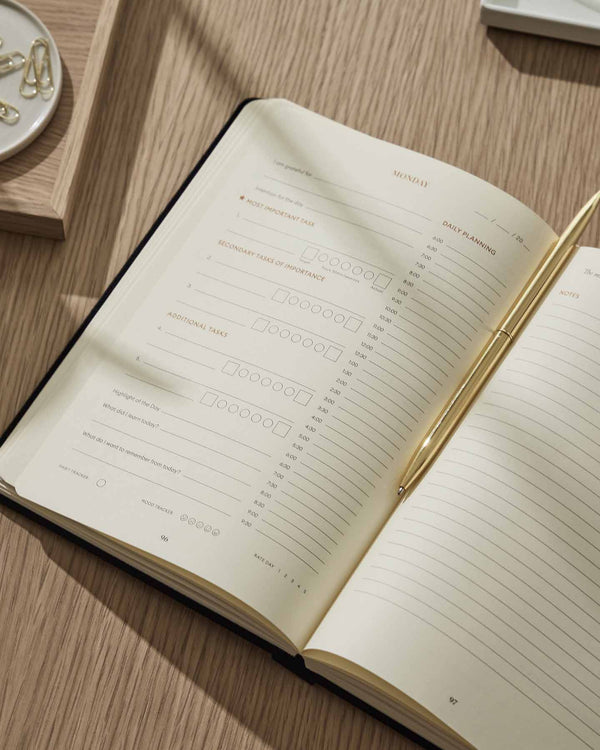 MONDAY
__ / __ / 20__
I am grateful for
Intention for the day
★ MOST IMPORTANT TASK
1.
SECONDARY TASKS OF IMPORTANCE
2.
3.
ADDITIONAL TASKS
4.
5.
Highlight of the Day
What did I learn today?
What do I want to remember from today?
HABIT TRACKER
MOOD TRACKER
96
DAILY PLANNING
6:00
6:30
7:00
7:30
8:00
8:30
9:00
9:30
10:00
10:30
11:00
11:30
12:00
12:30
1:00
1:30
2:00
2:30
3:00
3:30
4:00
4:30
5:00
5:30
6:00
6:30
7:00
7:30
8:00
8:30
9:00
9:30
RATE DAY 1 2 3 4 5
NOTES
97